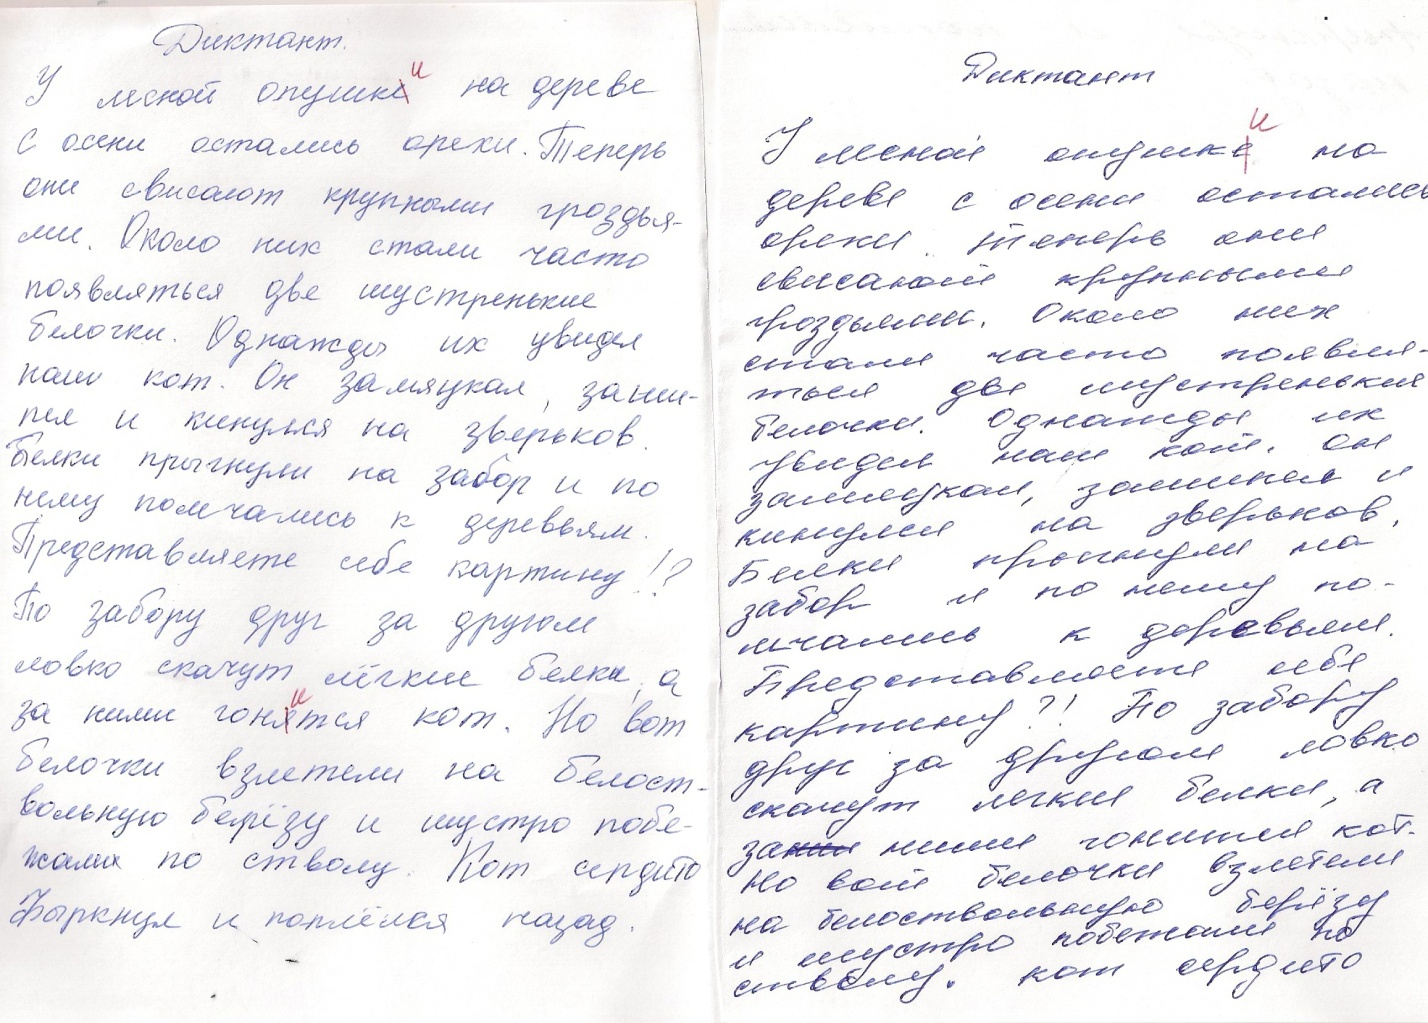 Диктант.
У лесной опушке и на дереве
с осени остались орехи. Теперь
они свисают крупными гроздья-
ми. Около них стали часто
появляться две шустренькие
белочки. Однажды их увидел
наш кот. Он замяукал, заши-
пел и кинулся на зверьков.
Белки прыгнули на забор и по
нему помчались к деревьям.
Представляете себе картину!?
По забору друг за другом
ловко скачут лёгкие белки, а
за ними гонятся и кот. Но вот
белочки взлетели на белост-
вольную берёзу и шустро побе-
жали по стволу. Кот сердито
Фыркнул и поплёлся назад.
Диктант
У лесной опушке и на
дереве с осени остались
орехи. Теперь они
свисают крупными
гроздьями. Около них
стали часто появля-
ться две шустренькие
белочки. Однажды их
увидел наш кот. Он
замяукал, зашипел и
кинулся на зверьков.
Белки прыгнули на
забор и по нему по-
мчались к деревьям.
Представляете себе
картину?! По забору
друг за другом ловко
скачут лёгкие белки, а
за ними гонится кот.
Но вот белочки взлетели
на белоствольную берёзу
и шустро побежали по
стволу. Кот сердито